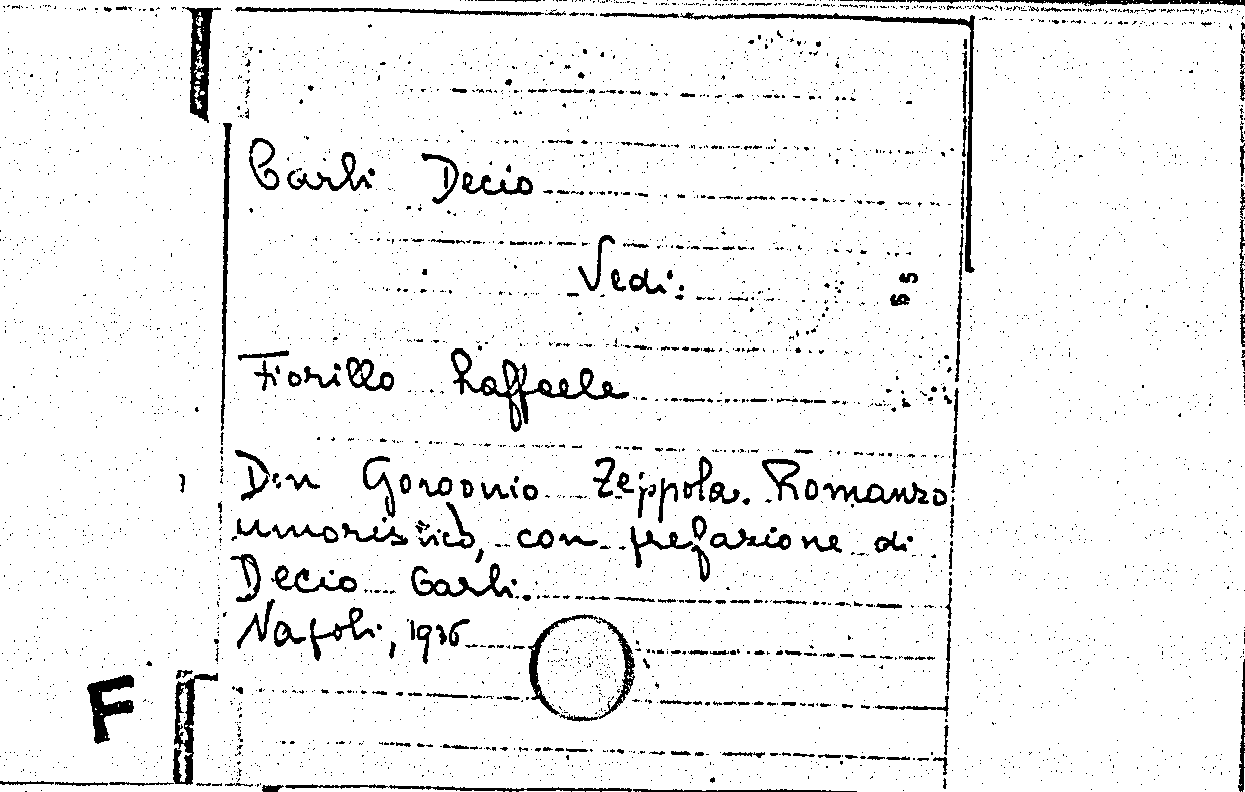 Carli Decio
Vedi:
55
Fiorillo Raffaele
Don Gorgonio Zeppola. Romanzo
umoristico, con prefazione di
Decio Carli.
Napoli, 1936
F